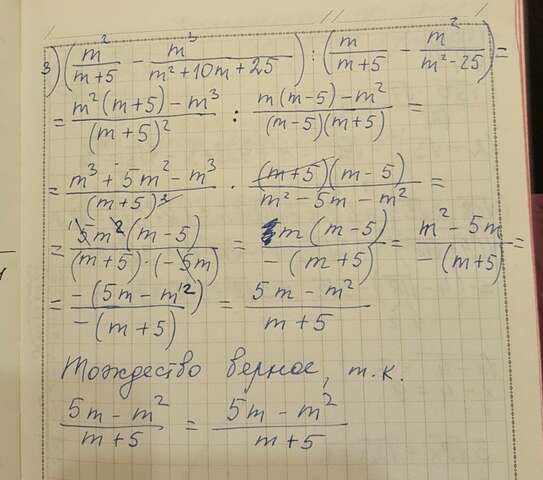 3) (m²/(m+5) − m³/(m²+10m+25)) : (m/(m+5) − m²/(m²−25)) =
= (m²(m+5) − m³)/(m+5)² : (m(m−5) − m²)/((m−5)(m+5)) =
= (m³ + 5m² − m³)/(m+5)² · ((m+5)(m−5))/(m² − 5m − m²) =
= (5m²(m−5))/((m+5)·(−5m)) = (m(m−5))/(−(m+5)) = (m² − 5m)/(−(m+5)) =
= (−(5m − m²))/(−(m+5)) = (5m − m²)/(m+5)
Тождество верное, т.к.
(5m − m²)/(m+5) = (5m − m²)/(m+5)